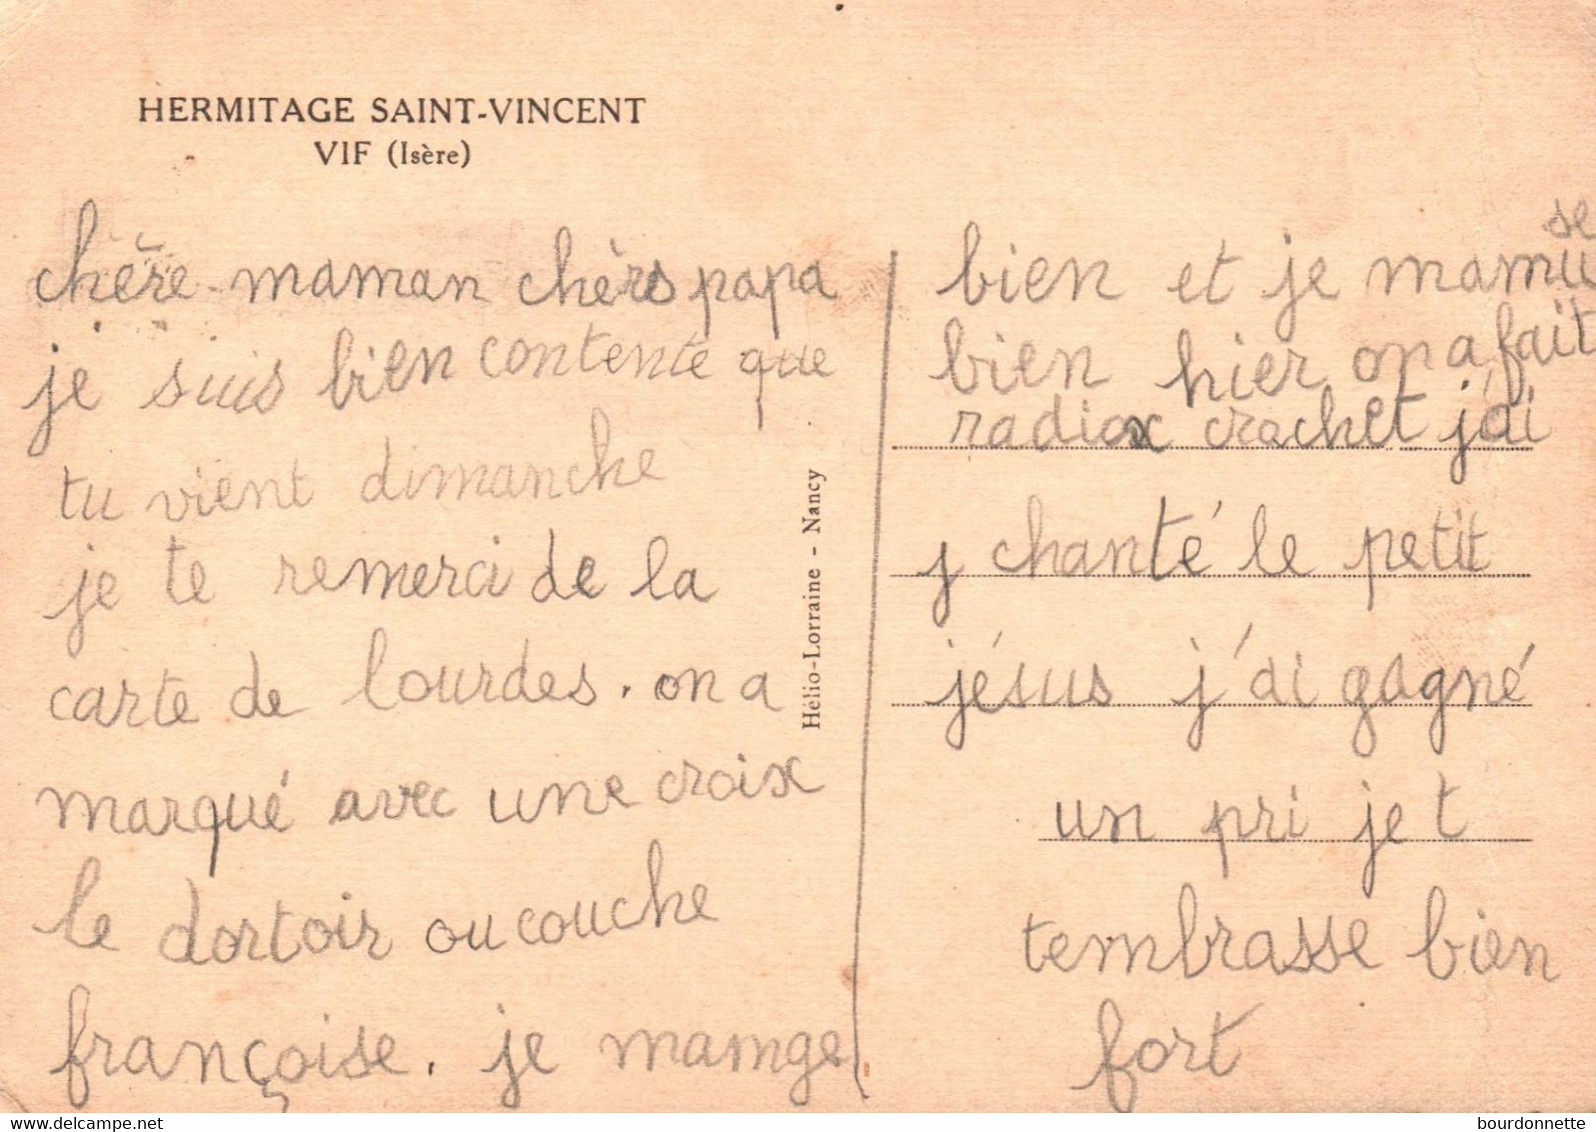 HERMITAGE SAINT-VINCENT
VIF (Isère)
chère maman chèrs papa
je suis bien contente que
tu vient dimanche
je te remerci de la
carte de lourdes. on a
marqué avec une croix
le dortoir ou couche
françoise. je mamge
Hélio-Lorraine - Nancy
bien et je mamuse
bien hier on a fait
radiox crochet j'ai
j chanté le petit
jésus j'ai gagné
un pri je t
tembrasse bien
fort
delcampe.net
bourdonnette